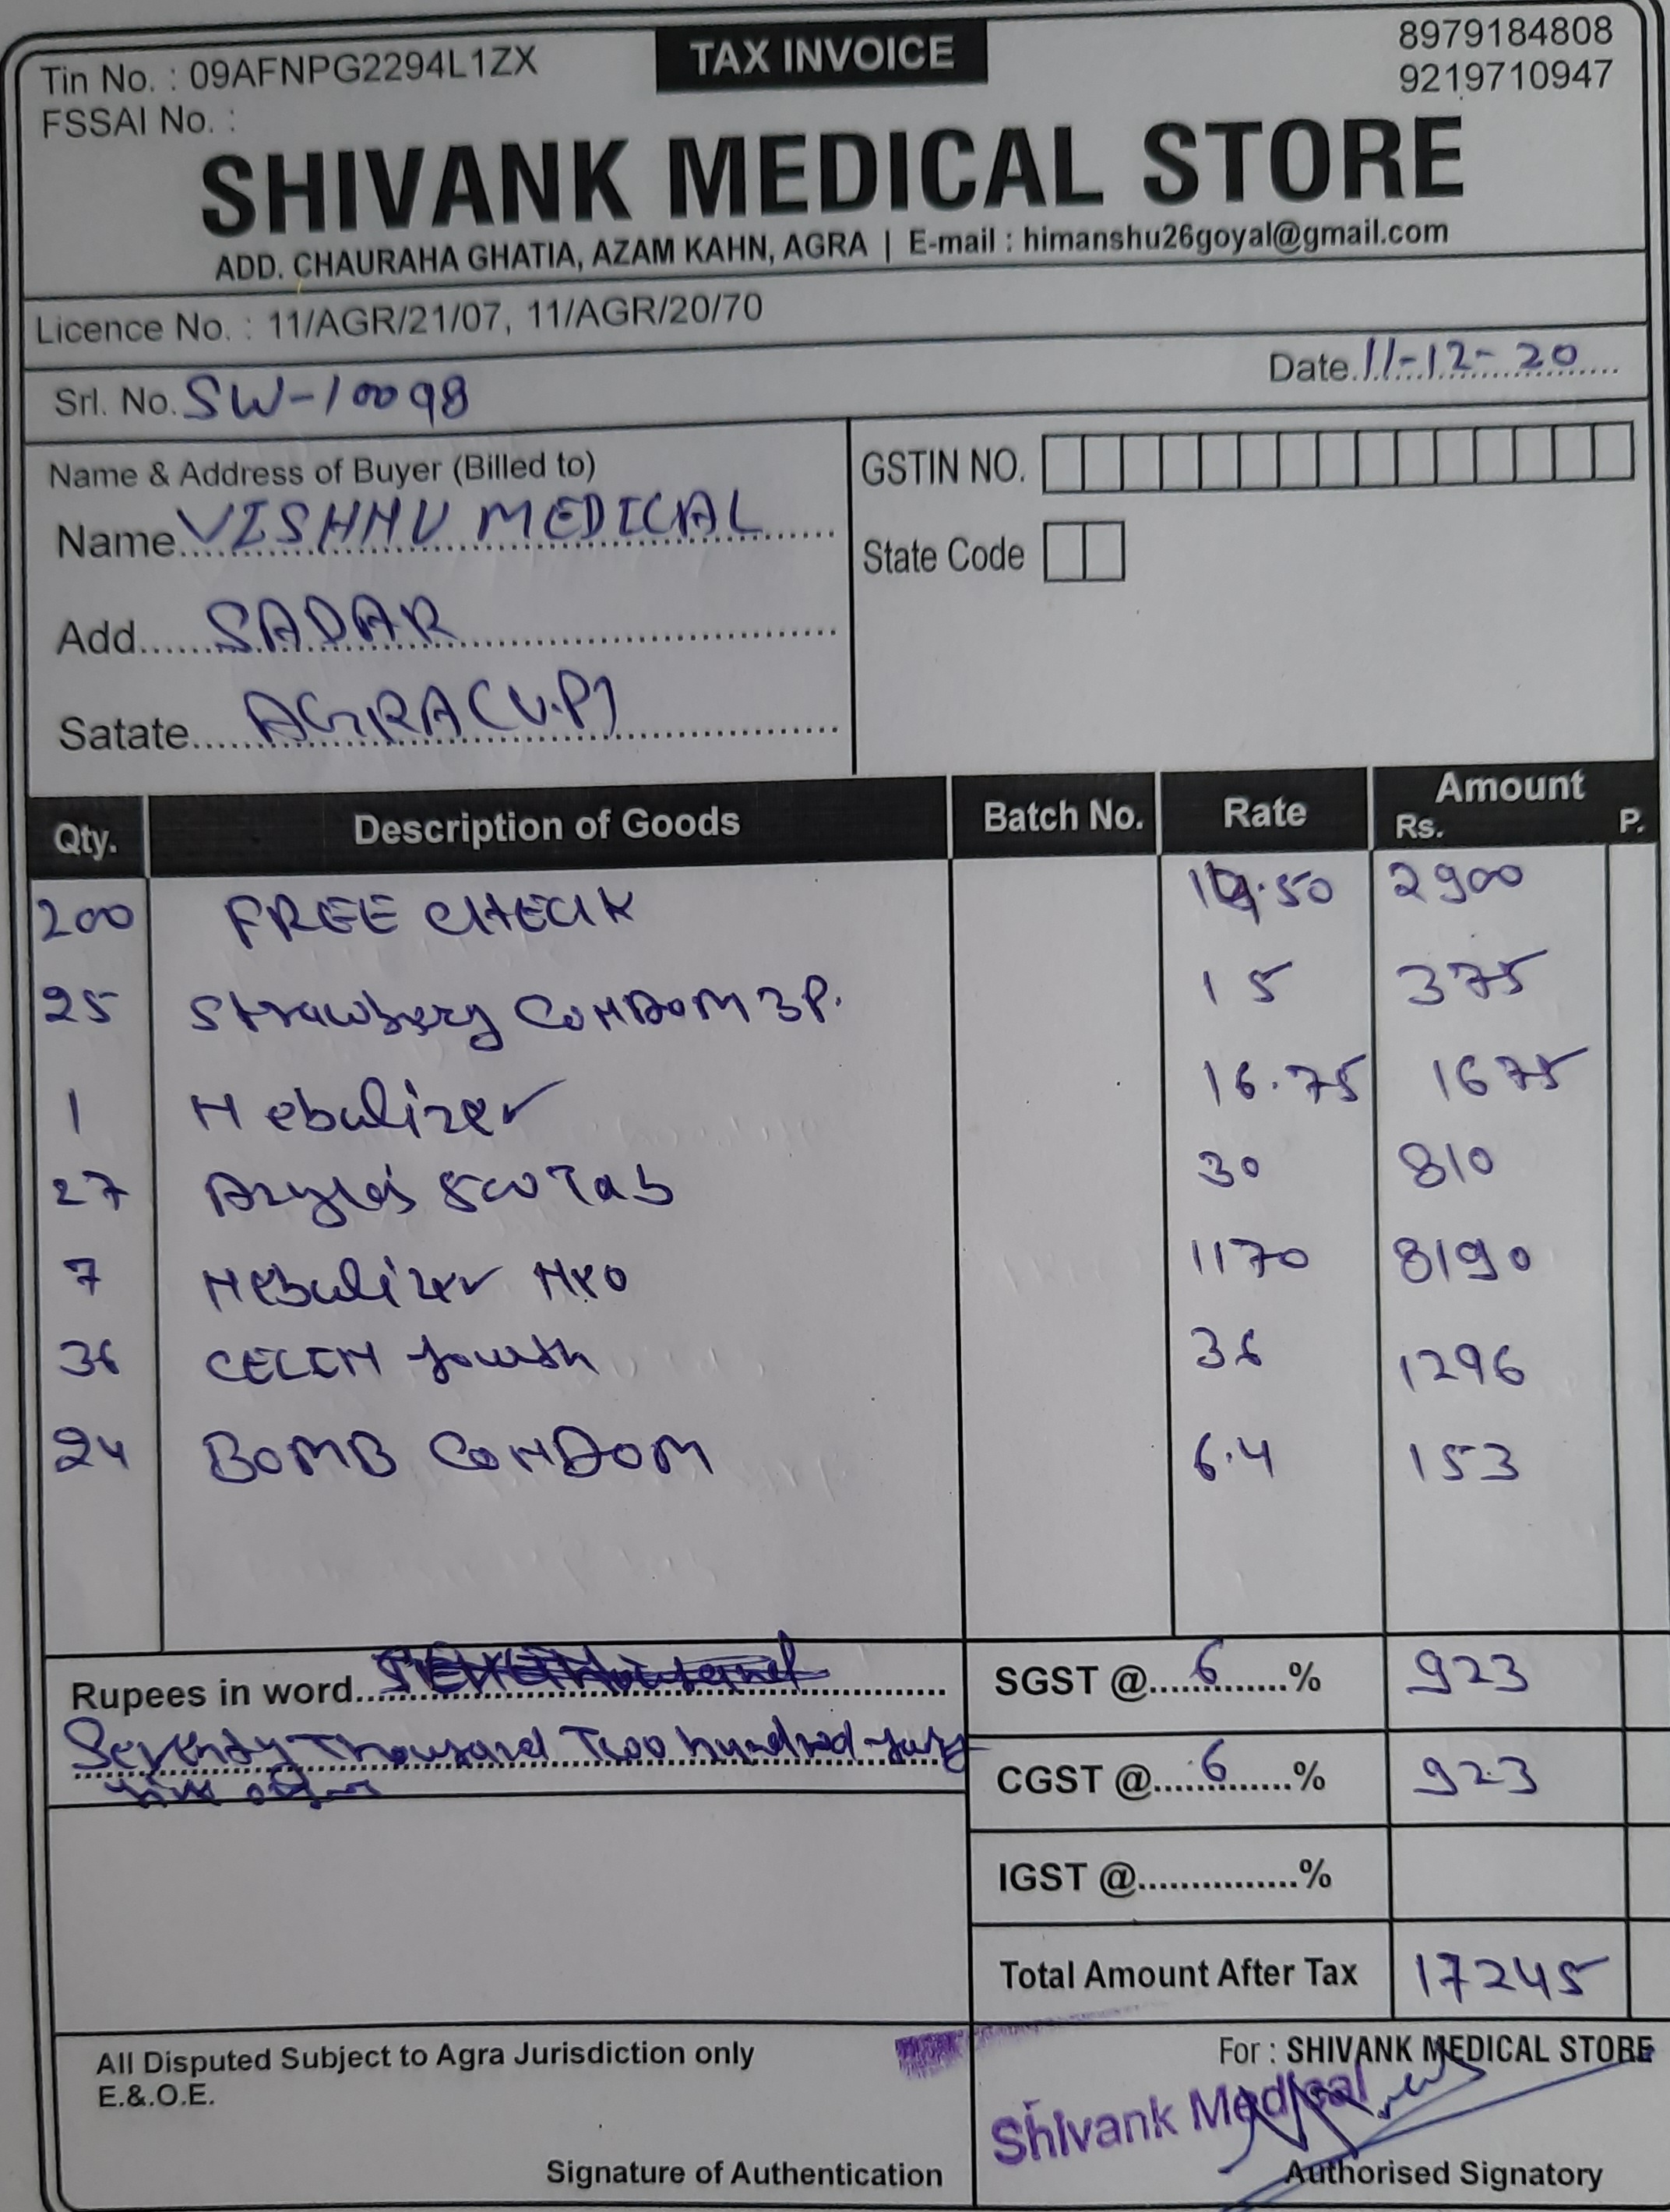 Tin No. : 09AFNPG2294L1ZX TAX INVOICE 8979184808
FSSAI No. : 9219710947
SHIVANK MEDICAL STORE
ADD. CHAURAHA GHATIA, AZAM KAHN, AGRA | E-mail : himanshu26goyal@gmail.com
Licence No. : 11/AGR/21/07, 11/AGR/20/70
Srl. No. SW-10098 Date 11-12-20
Name & Address of Buyer (Billed to) GSTIN NO.
Name VISHNU MEDICAL
State Code
Add SADAR
Satate AGRA (U.P)
Qty. Description of Goods Batch No. Rate Amount Rs. P.
200 FREE CHECK 14.50 2900
25 Strawbery CONDOM 3P. 15 375
1 Nebulizer 16.75 1675
27 500 Tab 30 810
7 Nebulizer 1170 8190
36 36 1296
24 BOMB CONDOM 6.4 153
Rupees in word SGST @ 6 % 923
Seventy Thousand Two hundred
CGST @ 6 % 923
IGST @ %
Total Amount After Tax 17245
All Disputed Subject to Agra Jurisdiction only For : SHIVANK MEDICAL STORE
E.&.O.E.
Shivank Medical
Signature of Authentication Authorised Signatory